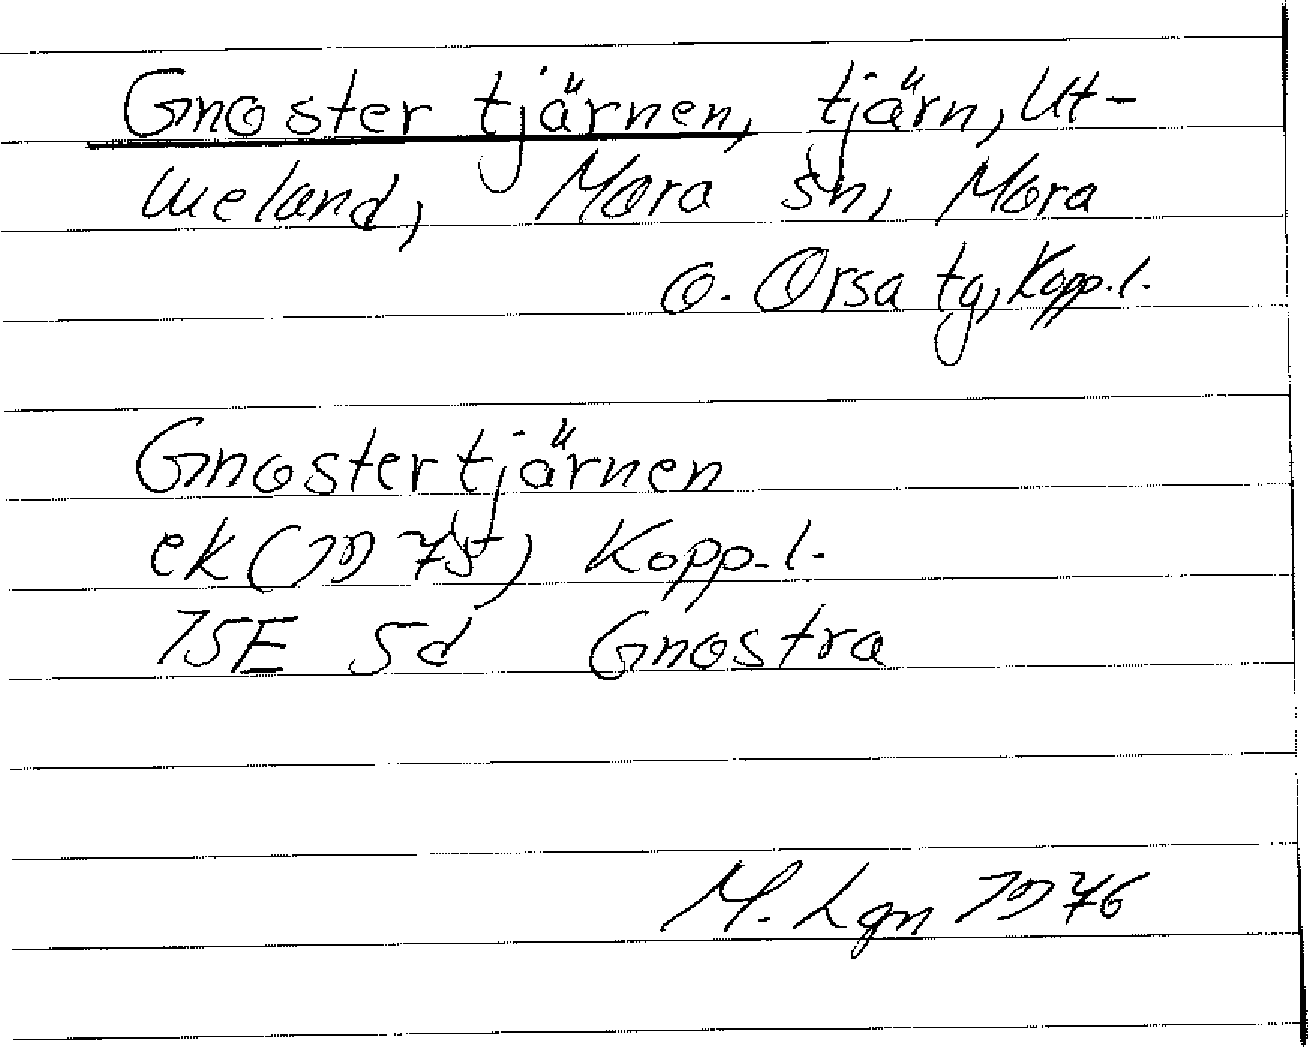 Gnostertjärnen, tjärn, Ut-
meland, Mora sn, Mora
o. Orsa tg, Kopp.l.
Gnostertjärnen
ek (1975) Kopp.l.
15E 5d Gnostra
M. Lgn 1976